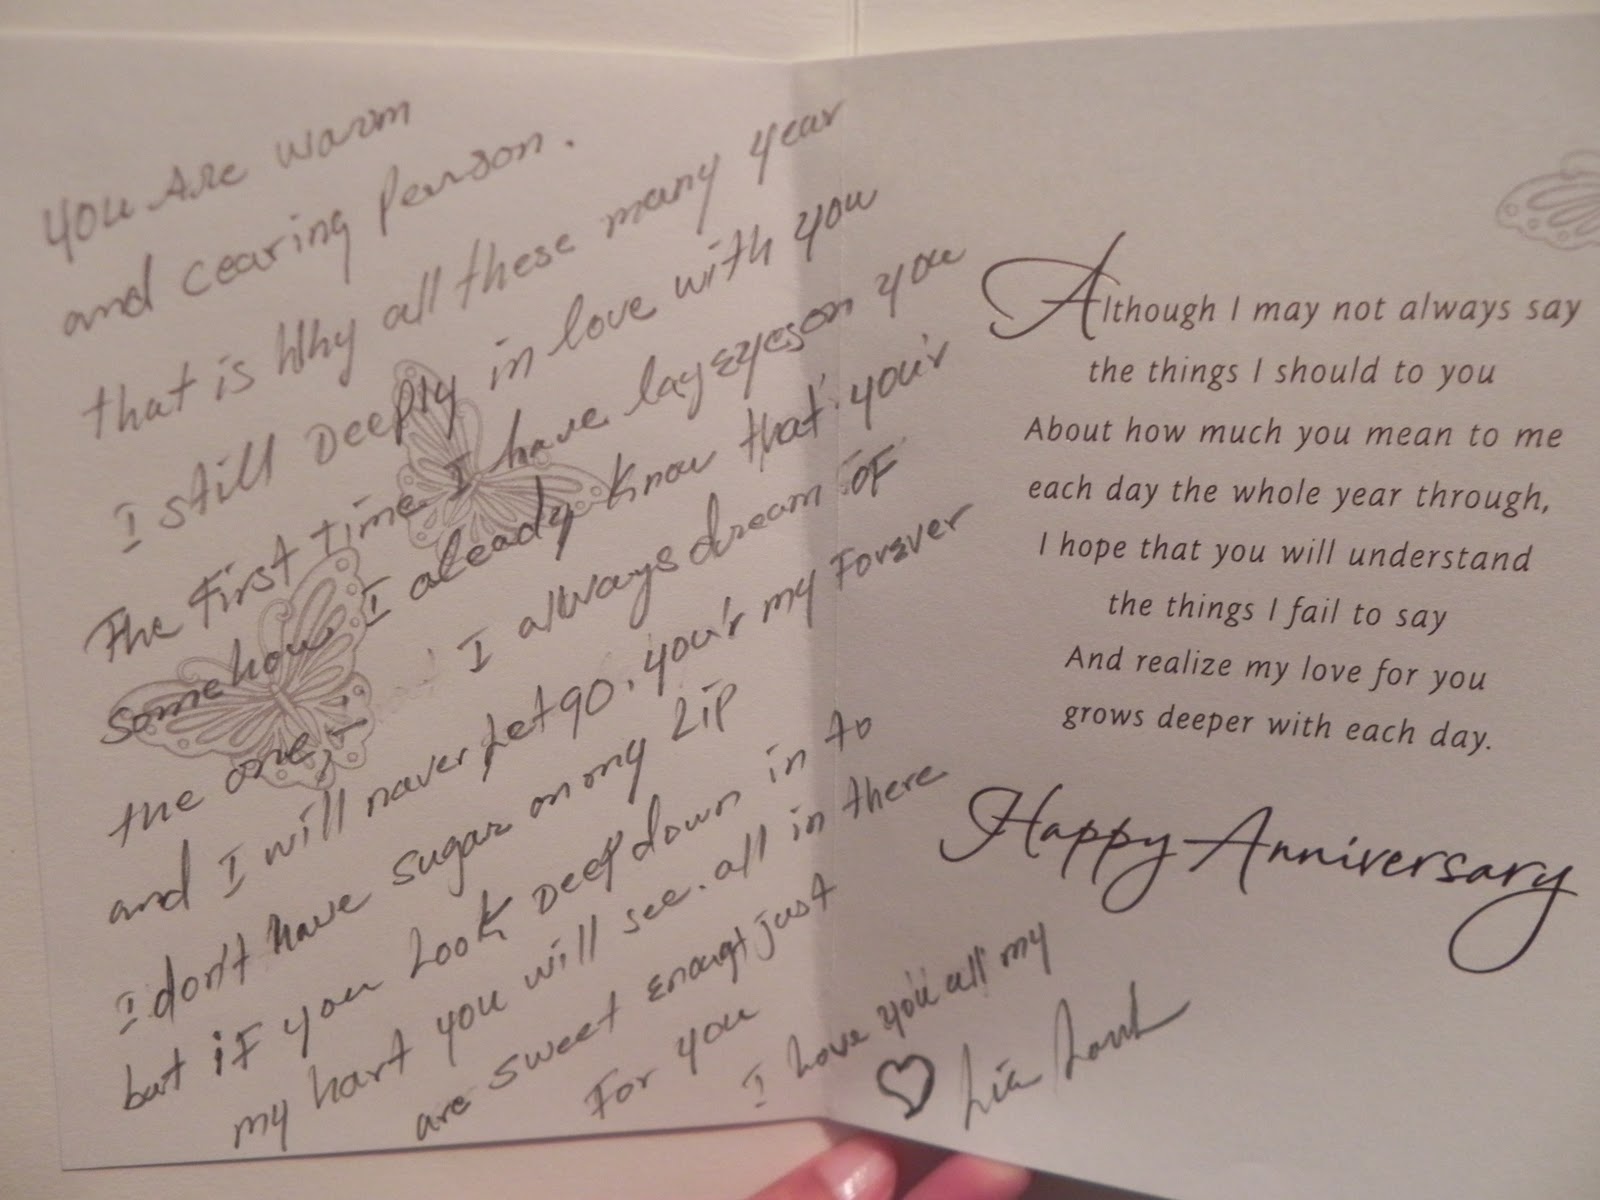 you Are warm
and cearing person.
that is Why all these many year
I still Deeply in love with you
The First time I have lay eyes on you
Somehow I aleady know that you'r
the one, I always dream OF
and I will naver Let go, you'r my Forever
I don't have sugar on my Lip
but iF you Look Deep down in to
my hart you will see. all in there
are sweet enought just
For you
I Love you all my
♡
Although I may not always say
the things I should to you
About how much you mean to me
each day the whole year through,
I hope that you will understand
the things I fail to say
And realize my love for you
grows deeper with each day.
Happy Anniversary